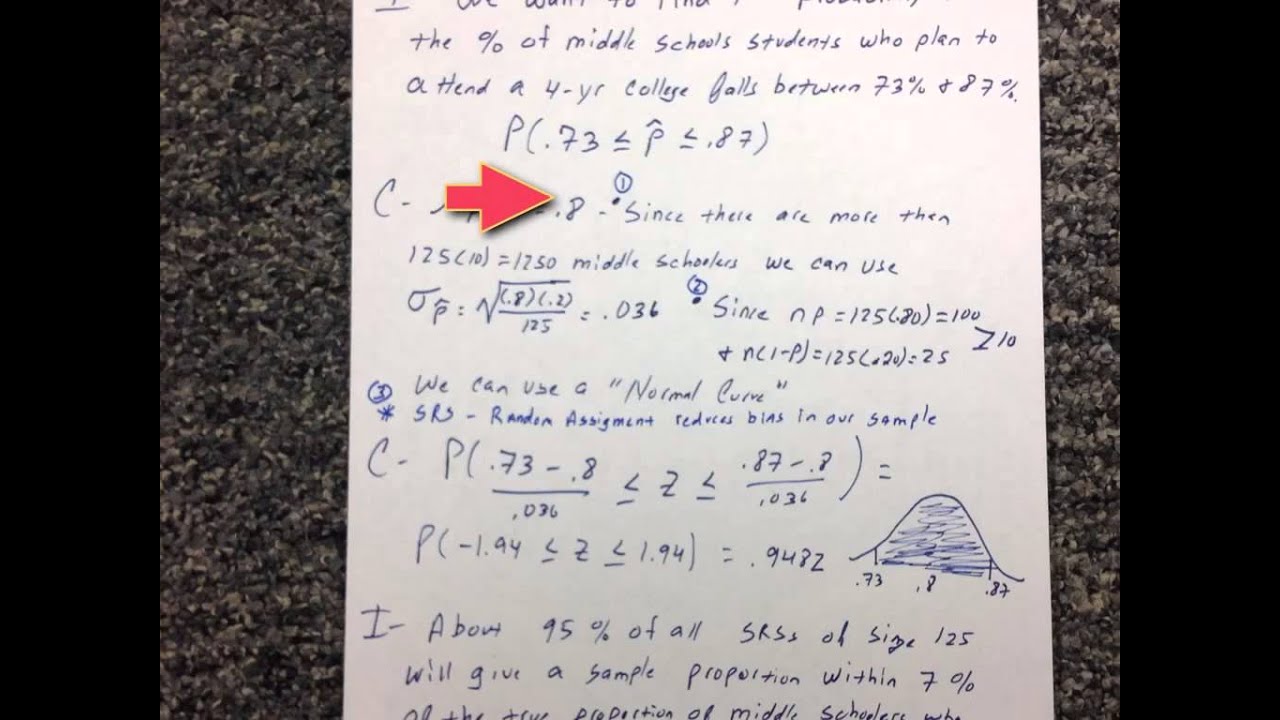 We want to find
the % of middle schools students who plan to
attend a 4-yr college falls between 73% + 87%.
P(.73 ≤ p̂ ≤ .87)
C- .8 - ① • Since there are more then
125(10) = 1250 middle schoolers we can use
σp̂ = √((.8)(.2)/125) = .036 ② • Since np = 125(.80) = 100
+ n(1-p) = 125(.20) = 25 ≥10
③ We can use a "Normal Curve"
* SRS - Random Assigment reduces bias in our sample
C- P((.73 - .8)/.036 ≤ Z ≤ (.87 - .8)/.036) =
P(-1.94 ≤ Z ≤ 1.94) = .9482
.73 .8 .87
I- About 95% of all SRSs of size 125
will give a sample proportion within 7%
of the true proportion of middle schoolers who